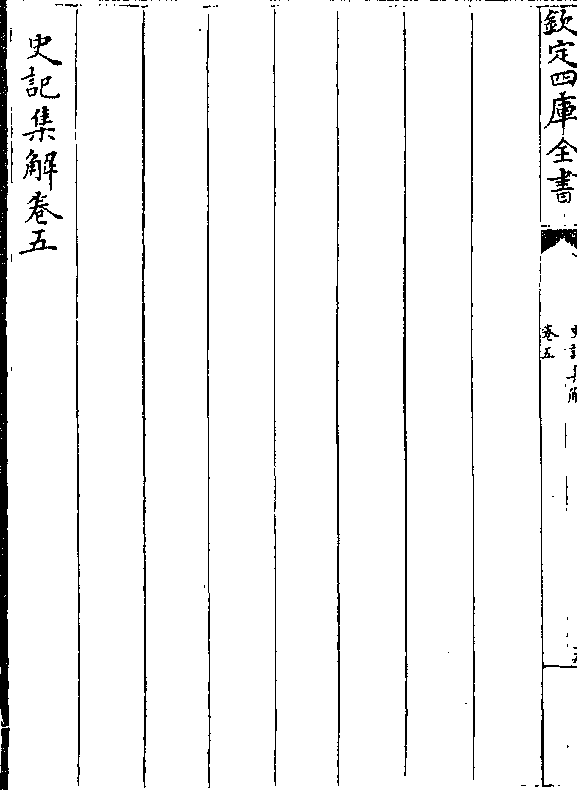 欽定四庫全書
史記集解
卷五
史記集解卷五